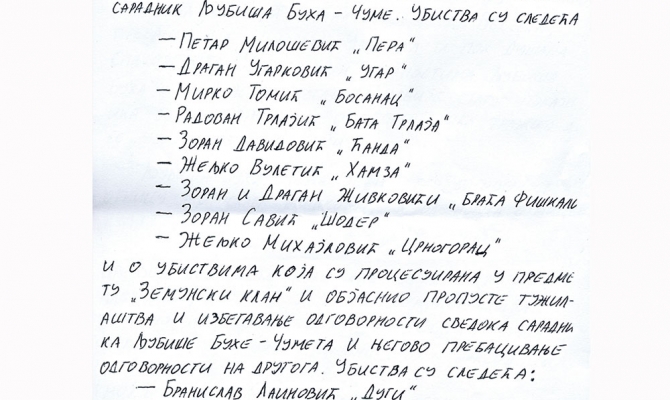 САРАДНИК ЉУБИША БУХА - ЧУМЕ. УБИСТВА СУ СЛЕДЕЋА
— ПЕТАР МИЛОШЕВИЋ „ПЕРА"
— ДРАГАН УГАРКОВИЋ „УГАР"
— МИРКО ТОМИЋ „БОСАНАЦ"
— РАДОВАН ТРЛАЈИЋ „БАТА ТРЛАЈА"
— ЗОРАН ДАВИДОВИЋ „ЋАНДА"
— ЖЕЉКО ВУЛЕТИЋ „ХАМЗА"
— ЗОРАН И ДРАГАН ЖИВКОВИЋИ „БРАЋА ФИШКАЛ
— ЗОРАН САВИЋ „ШОДЕР"
— ЖЕЉКО МИХАЈЛОВИЋ „ЦРНОГОРАЦ"
И О УБИСТВИМА КОЈА СУ ПРОЦЕСУИРАНА У ПРЕДМЕ
ТУ „ЗЕМУНСКИ КЛАН" И ОБЈАСНИО ПРОПУСТЕ ТУЖИЛ-
АШТВА И ИЗБЕГАВАЊЕ ОДГОВОРНОСТИ СВЕДОКА САРАДНИ
КА ЉУБИШЕ БУХЕ - ЧУМЕТА И ЊЕГОВО ПРЕБАЦИВАЊЕ
ОДГОВОРНОСТИ НА ДРУГОГА. УБИСТВА СУ СЛЕДЕЋА:
— БРАНИСЛАВ ЛАИНОВИЋ „ДУГИ"